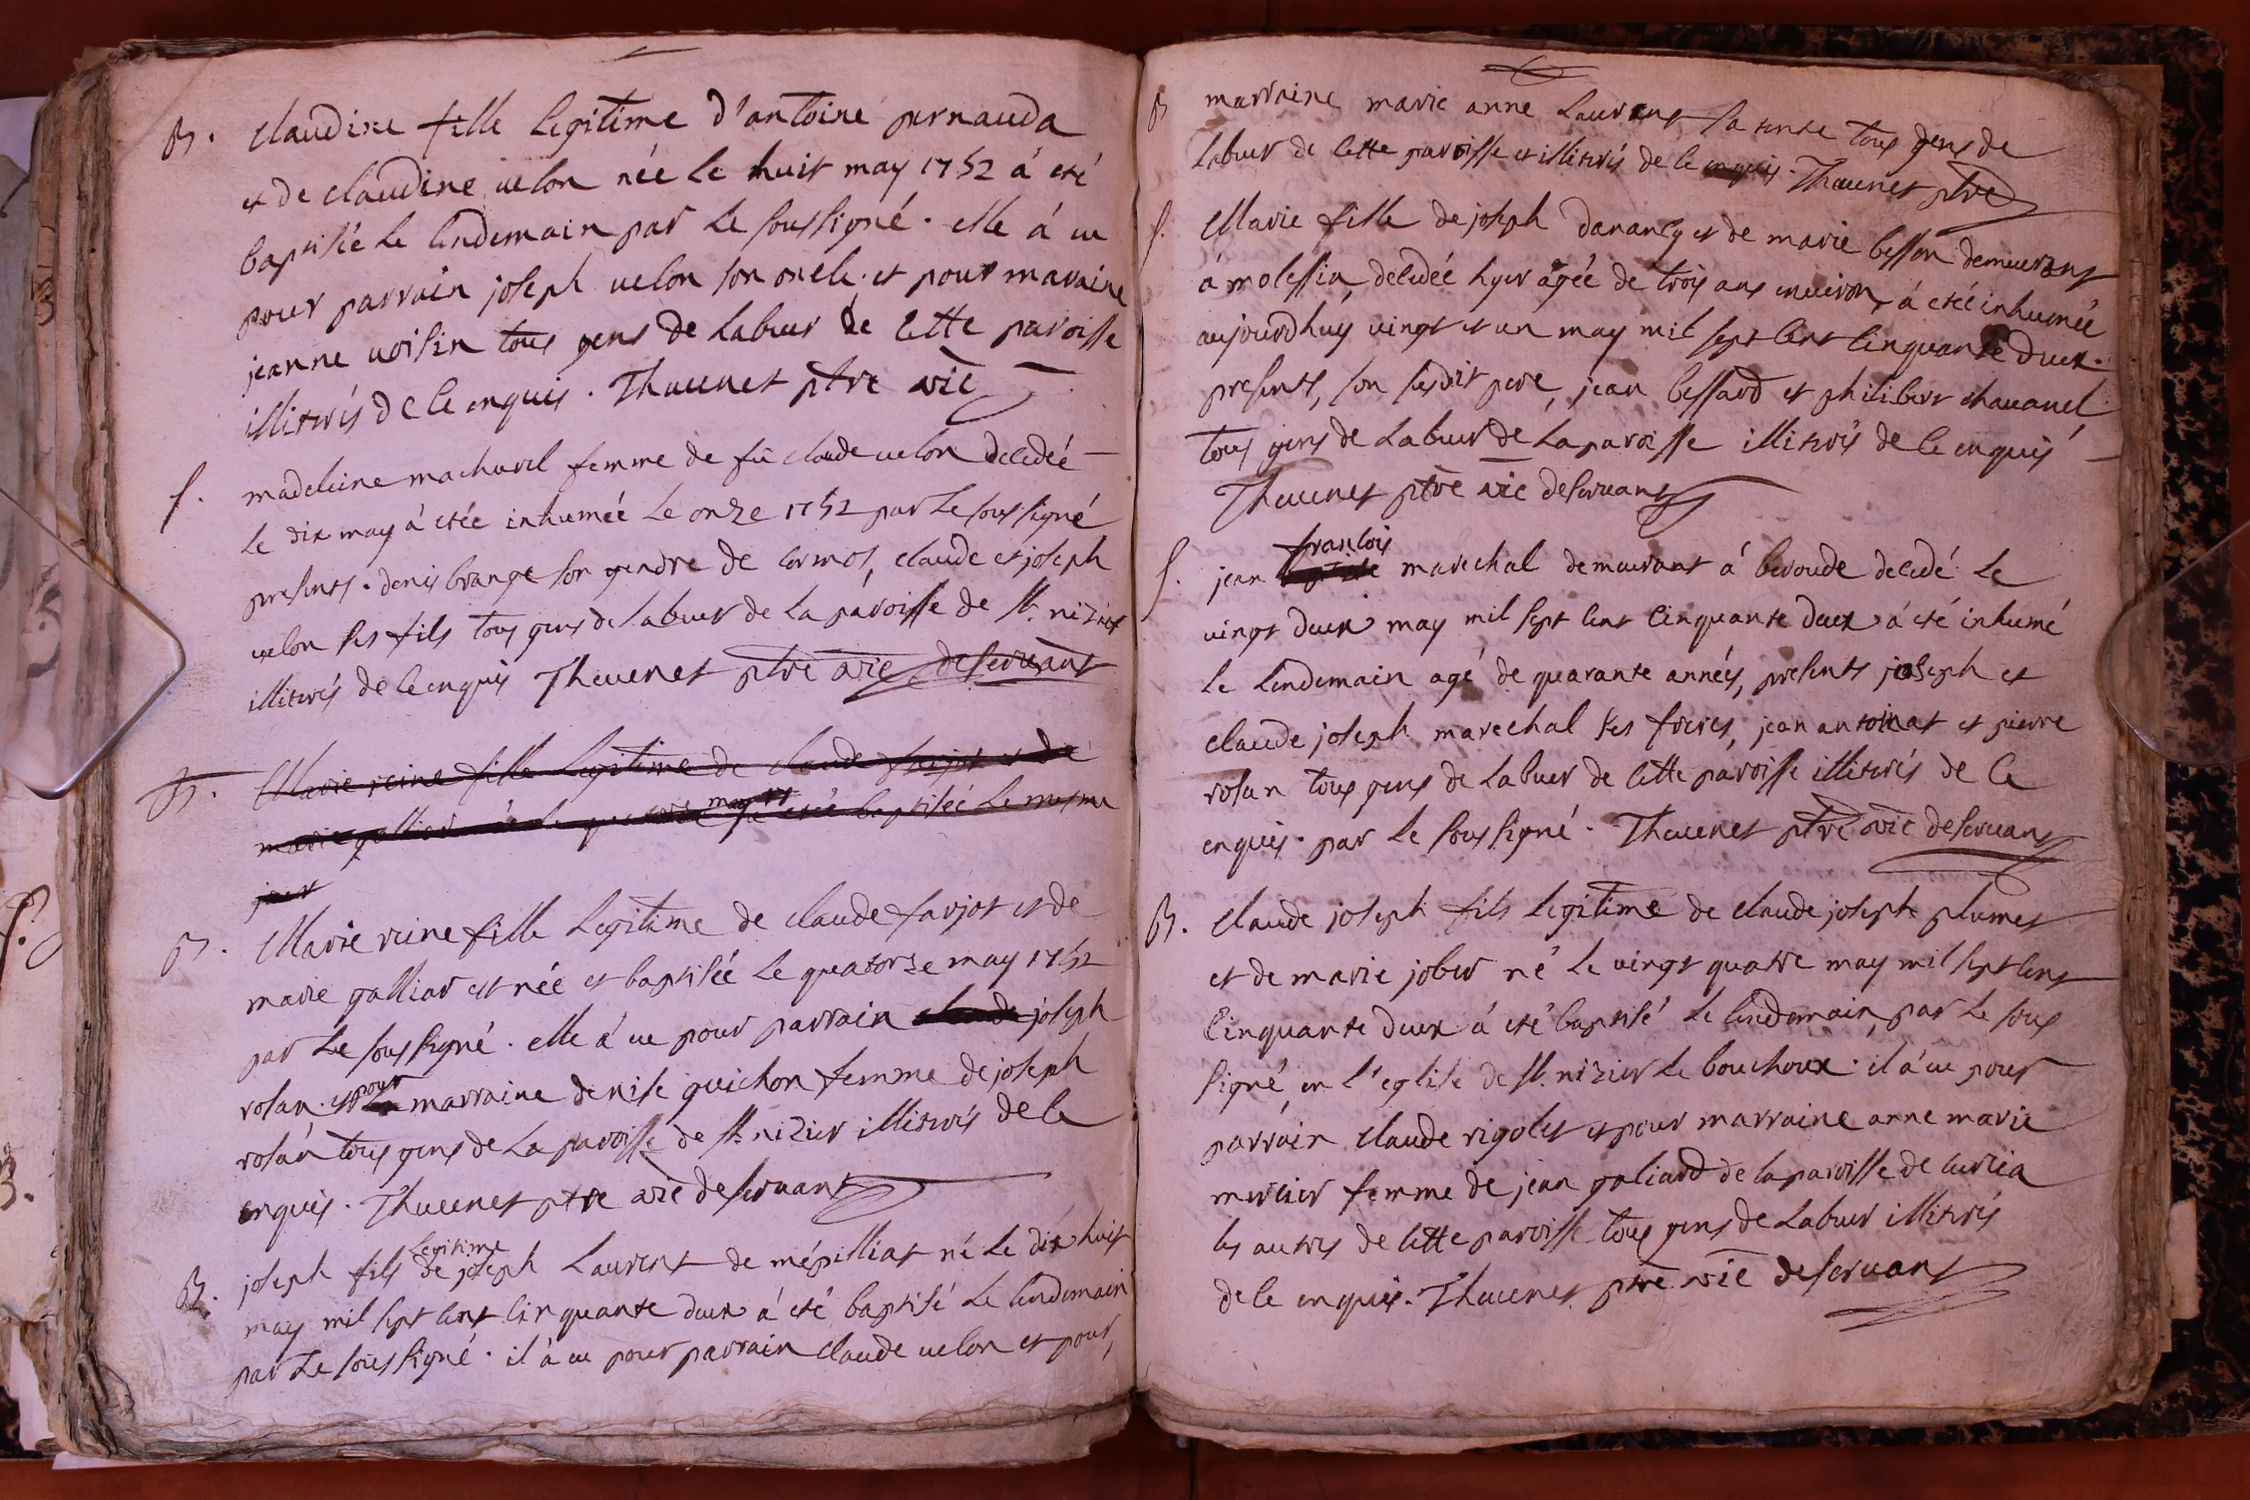 B. Claudine fille legitime d'antoine pernauda
et de claudine uelon née le huit may 1752 á eté
baptisée le lendemain par le soussigné. elle á eu
pour parrain joseph uelon son oncle. et pour maraine
jeanne uoisin tous gens de labeur de cette paroisse
illiterés de ce enquis. Theuenet ptre vic
S. madeleine machurel femme de fû claude uelon decedée
le dix may á etée inhumée le onze 1752 par le soussigné
presents. denis brange son gendre de cormos, claude et joseph
uelon ses fils tous gens de labeur de la paroisse de st. nizier
illiterés de ce enquis Theuenet ptre vic deseruant
B. Marie reine fille legitime de claude farjot et de
marie galliar née le quatorze may et á etée baptisée le mesme
jour
B. Marie reine fille legitime de claude farjot et de
marie galliar est née et baptisée le quatorze may 1752
par le soussigné. elle á eu pour parrain claude joseph
rosan. et pour marraine denise guichon femme de joseph
rosan tous gens de la paroisse de st. nizier illiterés de ce
enquis. Theuenet ptre vic deseruant
B. joseph fils legitime de joseph Laurent de mépilliat né le dix huit
may mil sept cent cinquante deux á eté baptisé le lendemain
par le soussigné. il á eu pour parrain claude uelon et pour,
B marraine marie anne Laurent sa tente tous gens de
labeur de cette paroisse et illiterés de ce enquis. Theuenet ptre
S. Marie fille de joseph danancy et de marie besson demeurant
á molessia, decedée hyer ágée de trois ans enuiron, á etée inhumée
aujourdhuy uingt et un may mil sept cent cinquante deux.
presents, son susdit pere, jean bessard et philibert chauanel,
tous gens de labeur de la paroisse illiterés de ce enquis
Theuenet ptre vic deseruant
S. jean françois marechal demeurant á beroude decedé le
uingt deux may mil sept cent cinquante deux á eté inhumé
le lendemain agé de quarante années, presents joseph et
claude joseph marechal ses freres, jean antoinat et pierre
rosan tous gens de labeur de cette paroisse illiterés de ce
enquis. par le soussigné. Theuenet ptre vic deseruant
B. Claude joseph fils legitime de claude joseph plumet
et de marie jober né le uingt quatre may mil sept cent
cinquante deux á eté baptisé le lendemain, par le sous
signé, en l'eglise de st. nizier le bouchoux. il á eu pour
parrain claude rigolet et pour marraine anne marie
mercier femme de jean galiard de la paroisse de curcia
les autres de cette paroisse tous gens de labeur illiterés
de ce enquis. Theuenet ptre vic deseruant